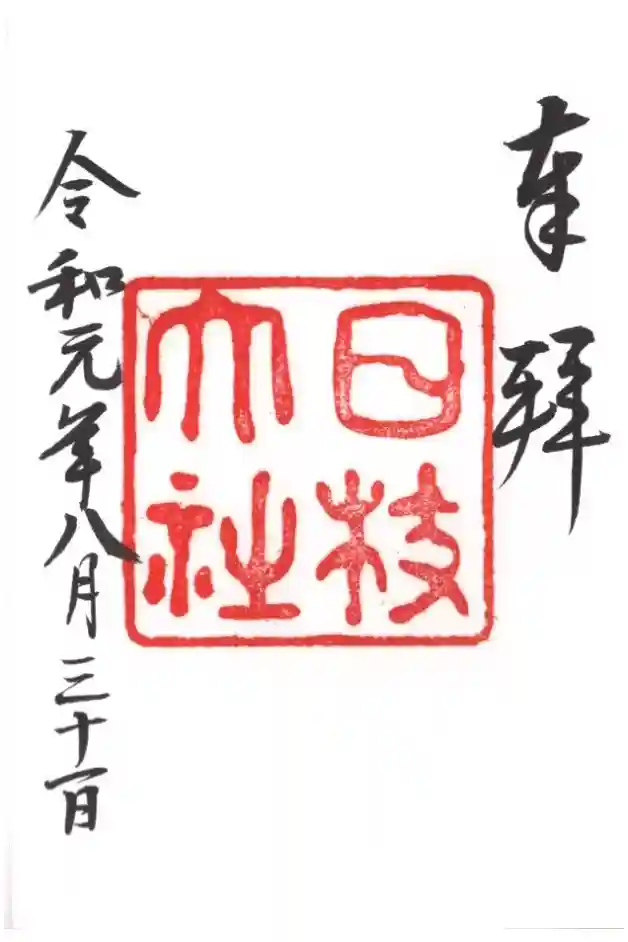 奉拝
日枝
大社
令和元年八月三十一日